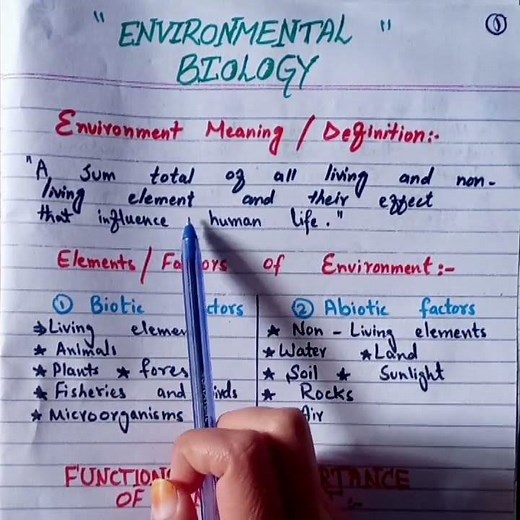 " ENVIRONMENTAL "
①
BIOLOGY
Environment Meaning / Definition:-
"A sum total of all living and non-
living element and their effect
that influence human life."
Elements / Factors of Environment:-
① Biotic ctors
② Abiotic factors
→Living elemen
★ Animals
★ Plants ★ fores
★ Fisheries and irds
★ Microorganisms
★ Non - Living elements
★Water ★Land
★ Soil ★ Sunlight
★ Rocks
Air
FUNCTIONS RTANCE
OF